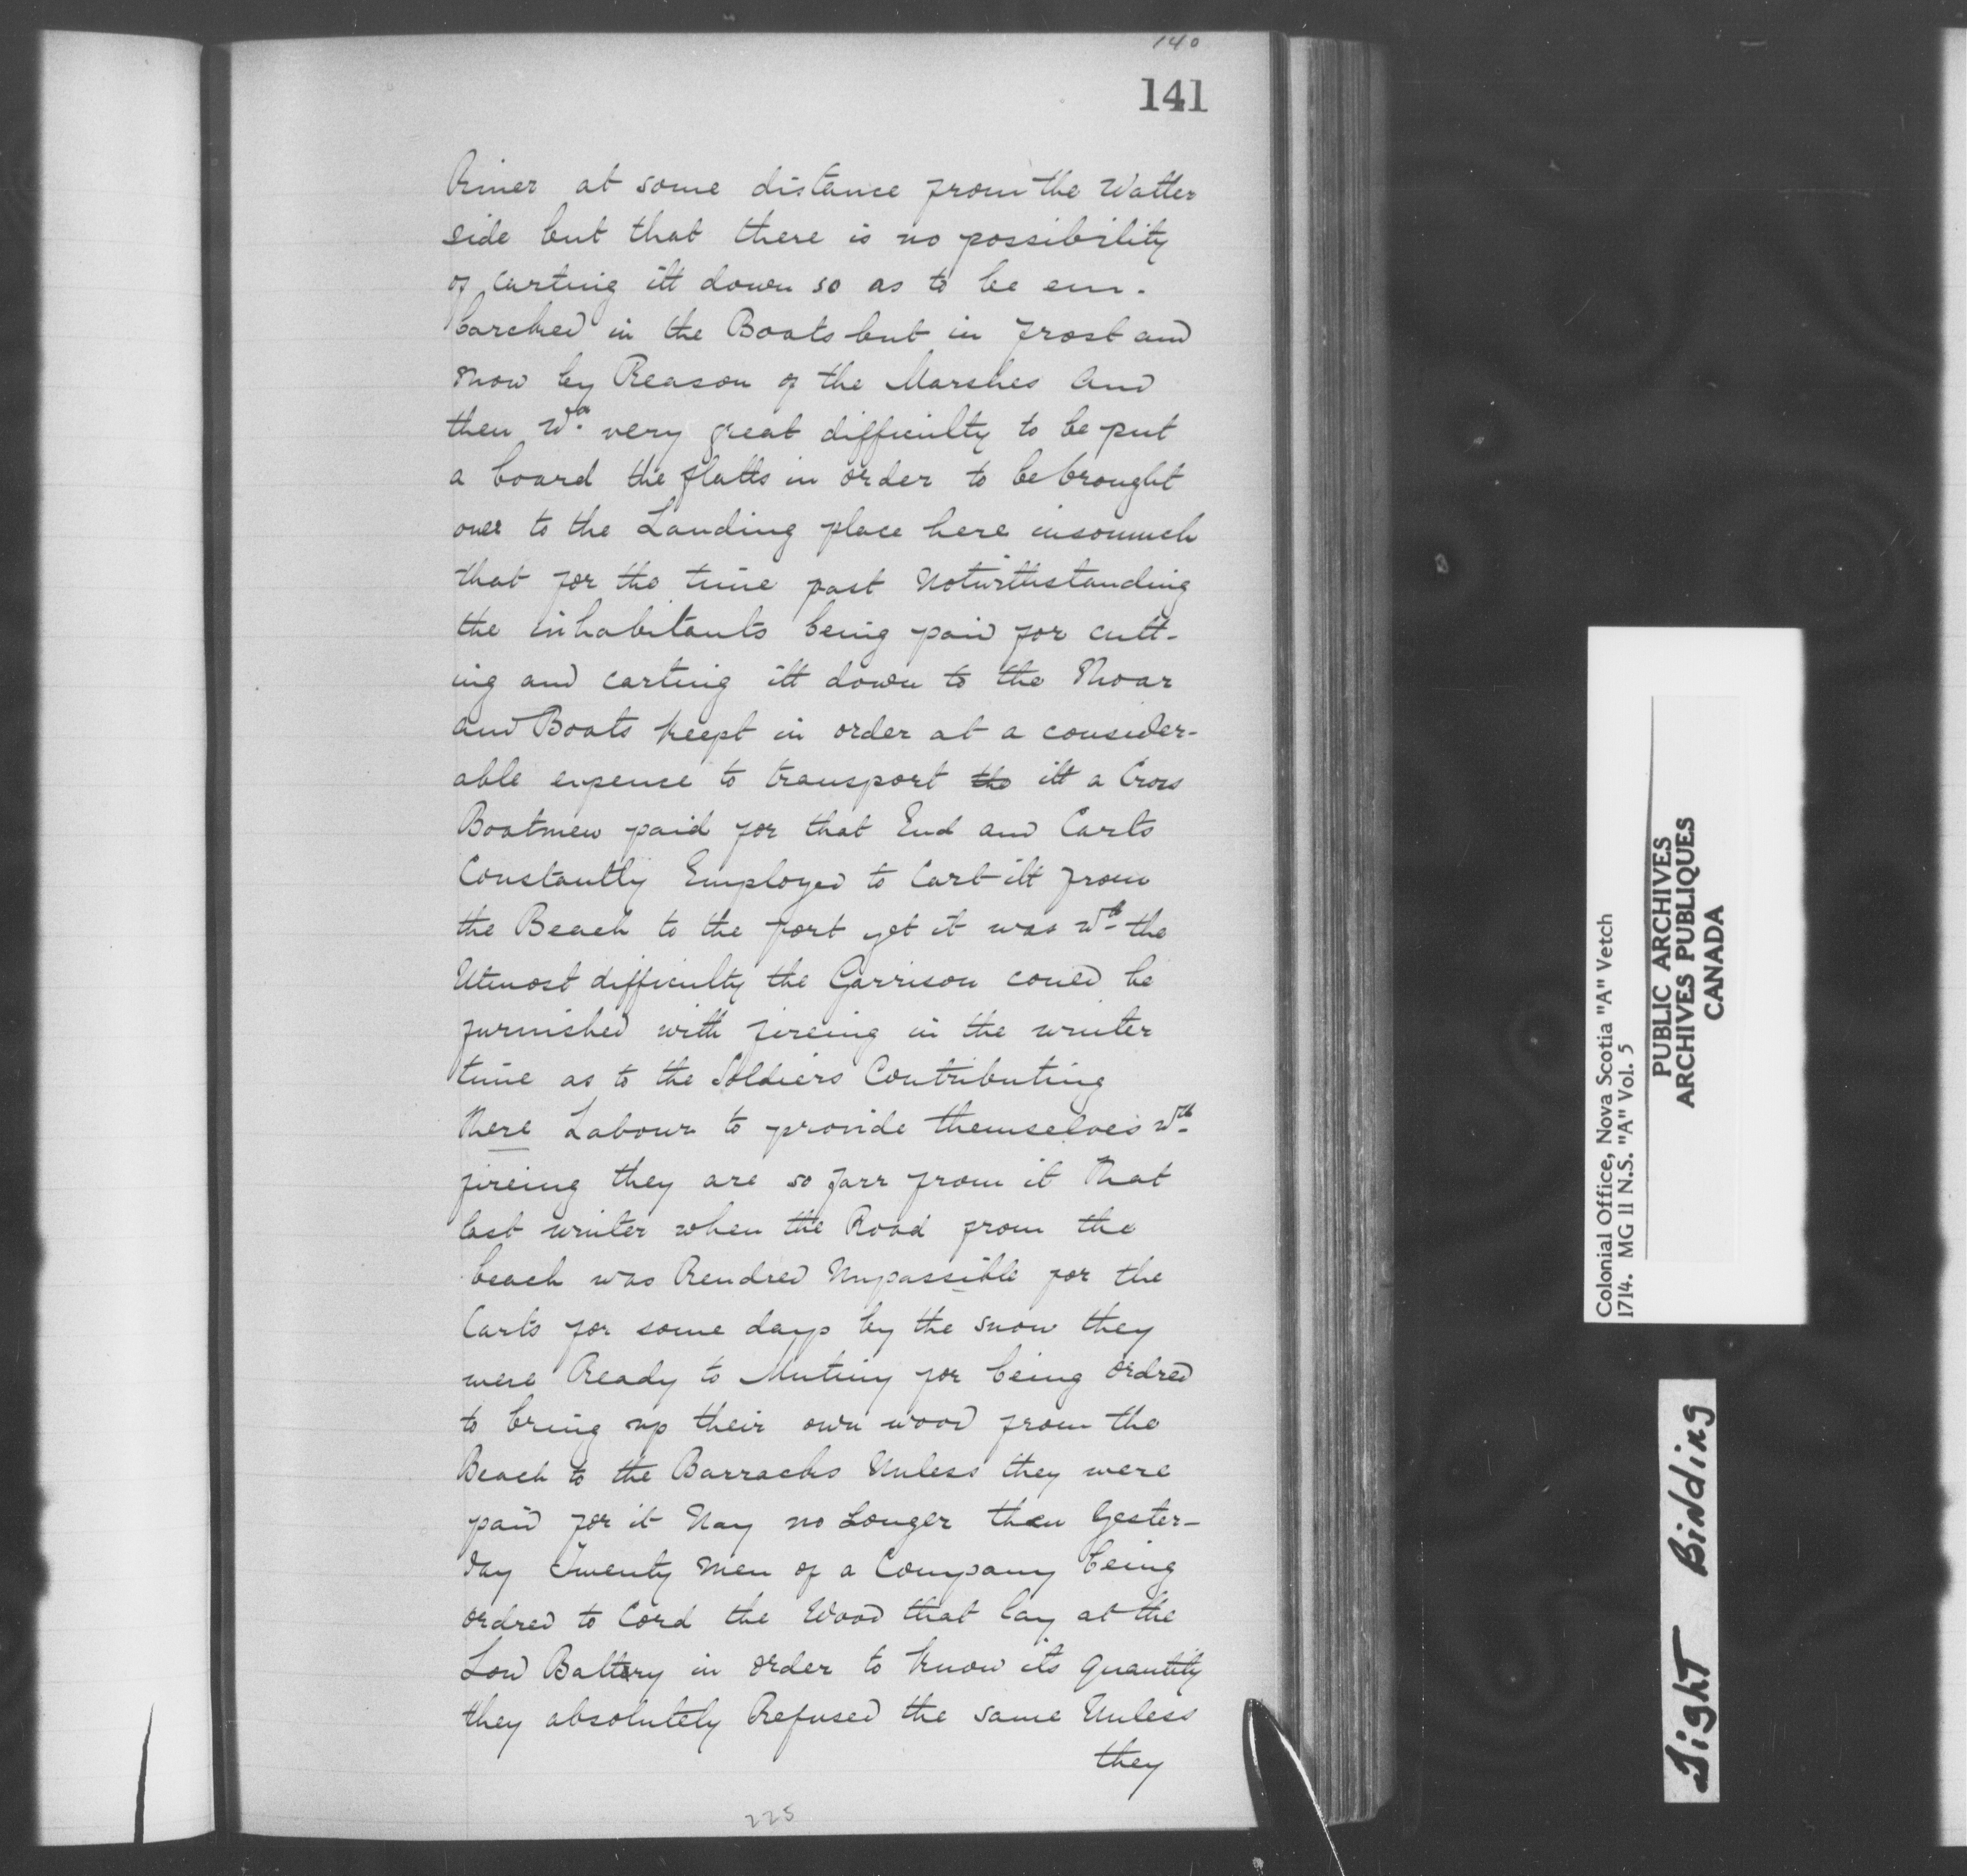 140
141
River at some distance from the Watter
side but that there is no possibility
of carting itt down so as to be em-
barcked in the Boats but in frost and
snow by Reason of the Marshes And
then Wth very great difficulty to be put
a board the flatts in order to be brought
over to the Landing place here insomuch
that for the time past Notwithstanding
the inhabitants being paid for cutt-
ing and carting itt down to the Shoar
and Boats keept in order at a consider-
able expence to transport the itt a Cross
Boatmen paid for that End and Carts
Constantly Employed to Cart itt from
the Beach to the fort yet it was Wth the
Utmost difficulty the Garrison coued be
furnished with fireing in the winter
time as to the Soldiers Contributing
there Labour to provide themselves Wth
fireing they are so farr from it That
last winter when the Road from the
beach was Rendred Unpassible for the
Carts for some days by the snow they
were Ready to Mutiny for being ordred
to bring up their own wood from the
Beach to the Barracks Unless they were
paid for it Nay no Longer then Yester-
day Twenty men of a Company being
ordred to Cord the Wood that lay at the
Low Battery in order to know its quantity
they absolutely Refused the same Unless
they
225
Colonial Office, Nova Scotia "A" Vetch
1714. MG 11 N.S. "A" Vol. 5
PUBLIC ARCHIVES
ARCHIVES PUBLIQUES
CANADA
Tight Binding